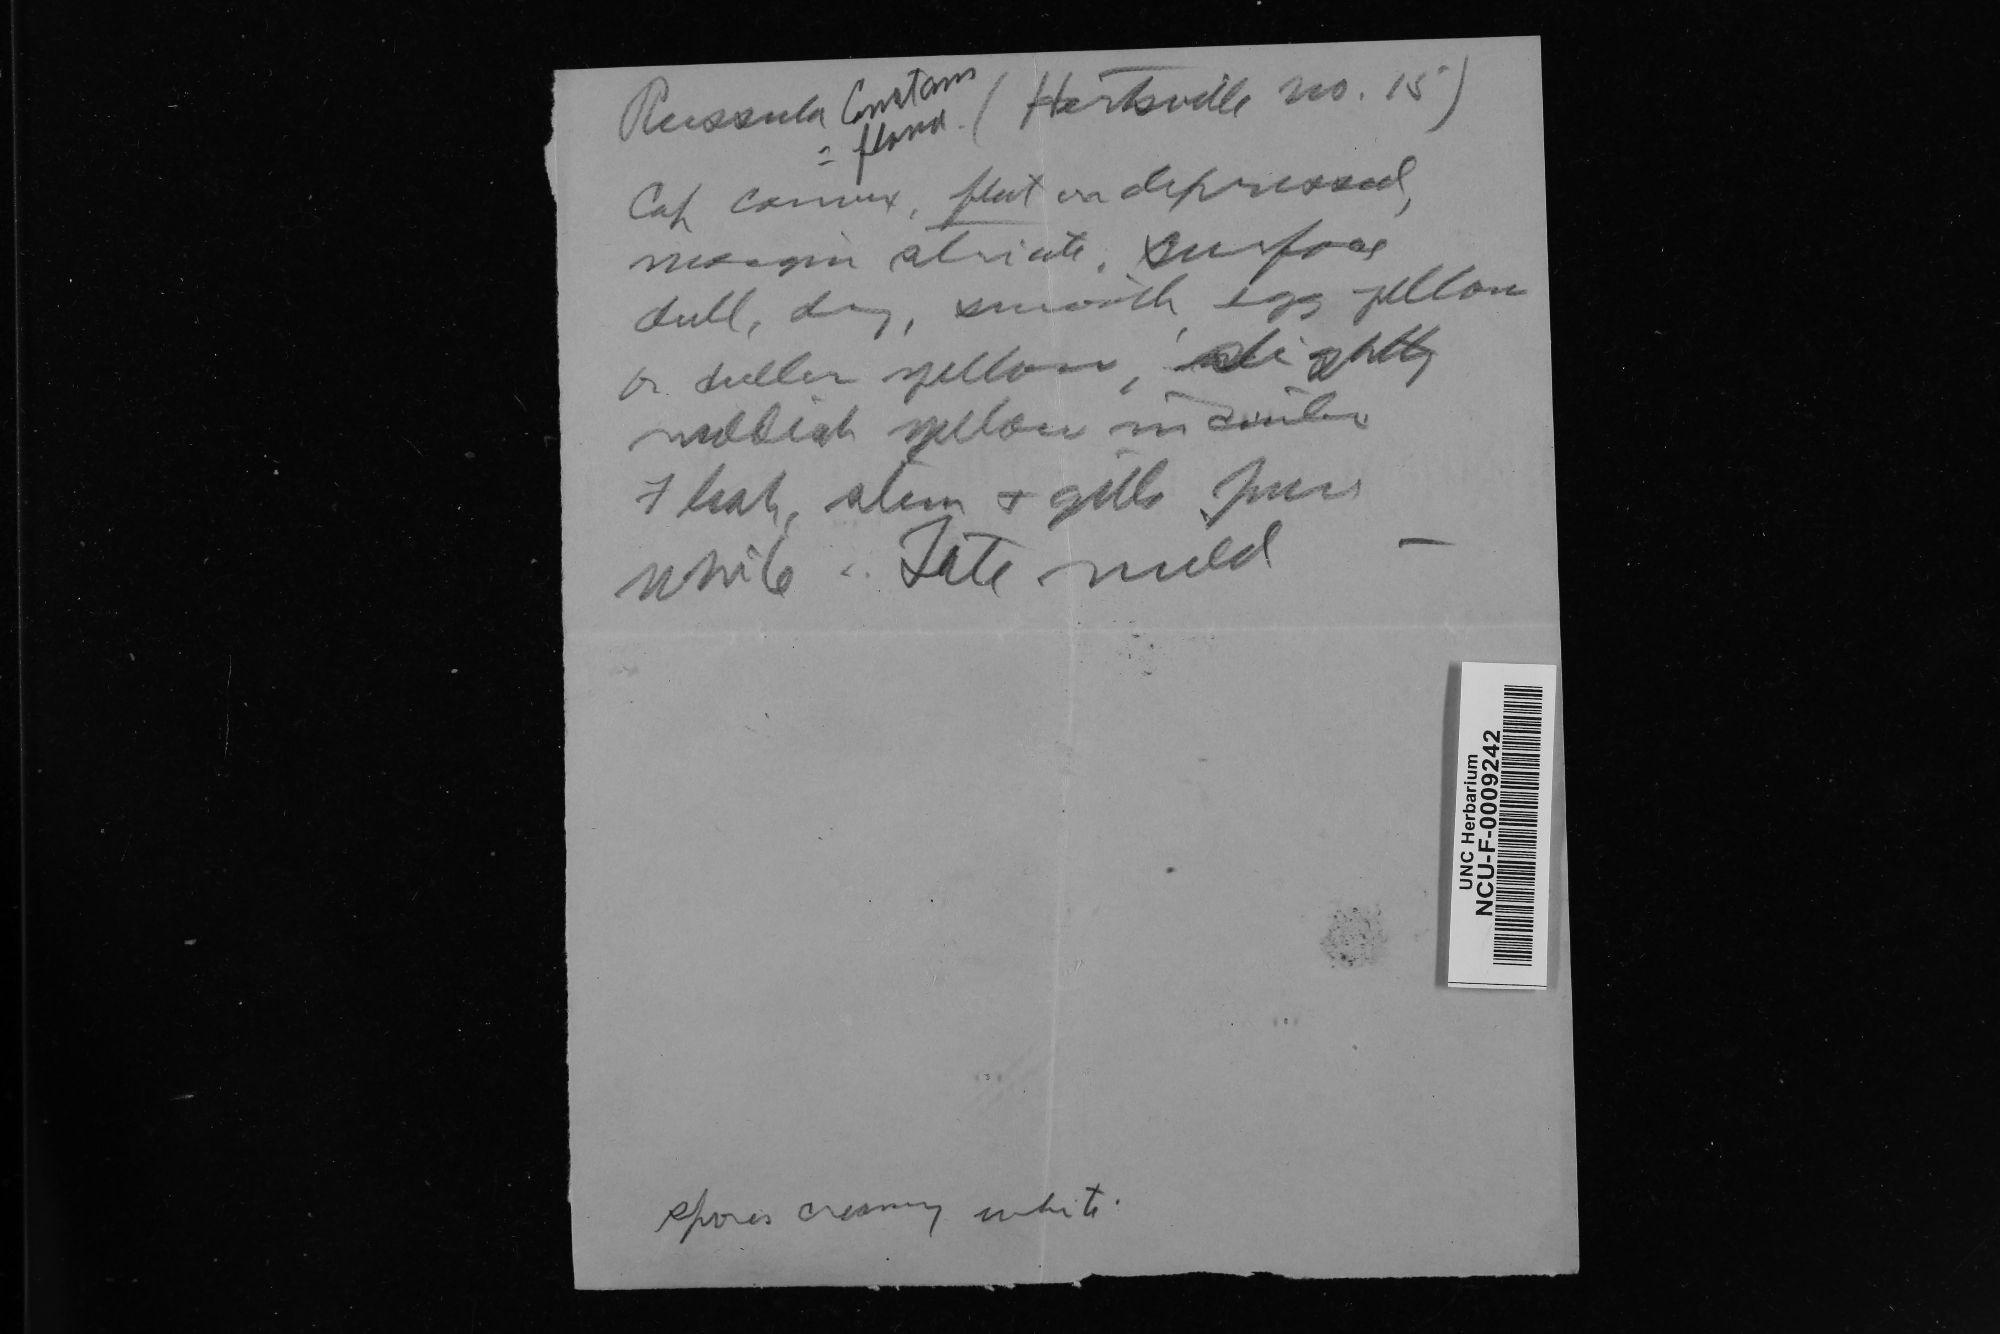 Russula Constans (Hartsville no. 15)
= flava.
Cap convex, flat or depressed,
margin striate. Surface
dull, dry, smooth, egg yellow
or duller yellow, slightly
reddish yellow in center
Flesh, stem + gills pure
white. Taste mild —
spores creamy white.
UNC Herbarium
NCU-F-0009242